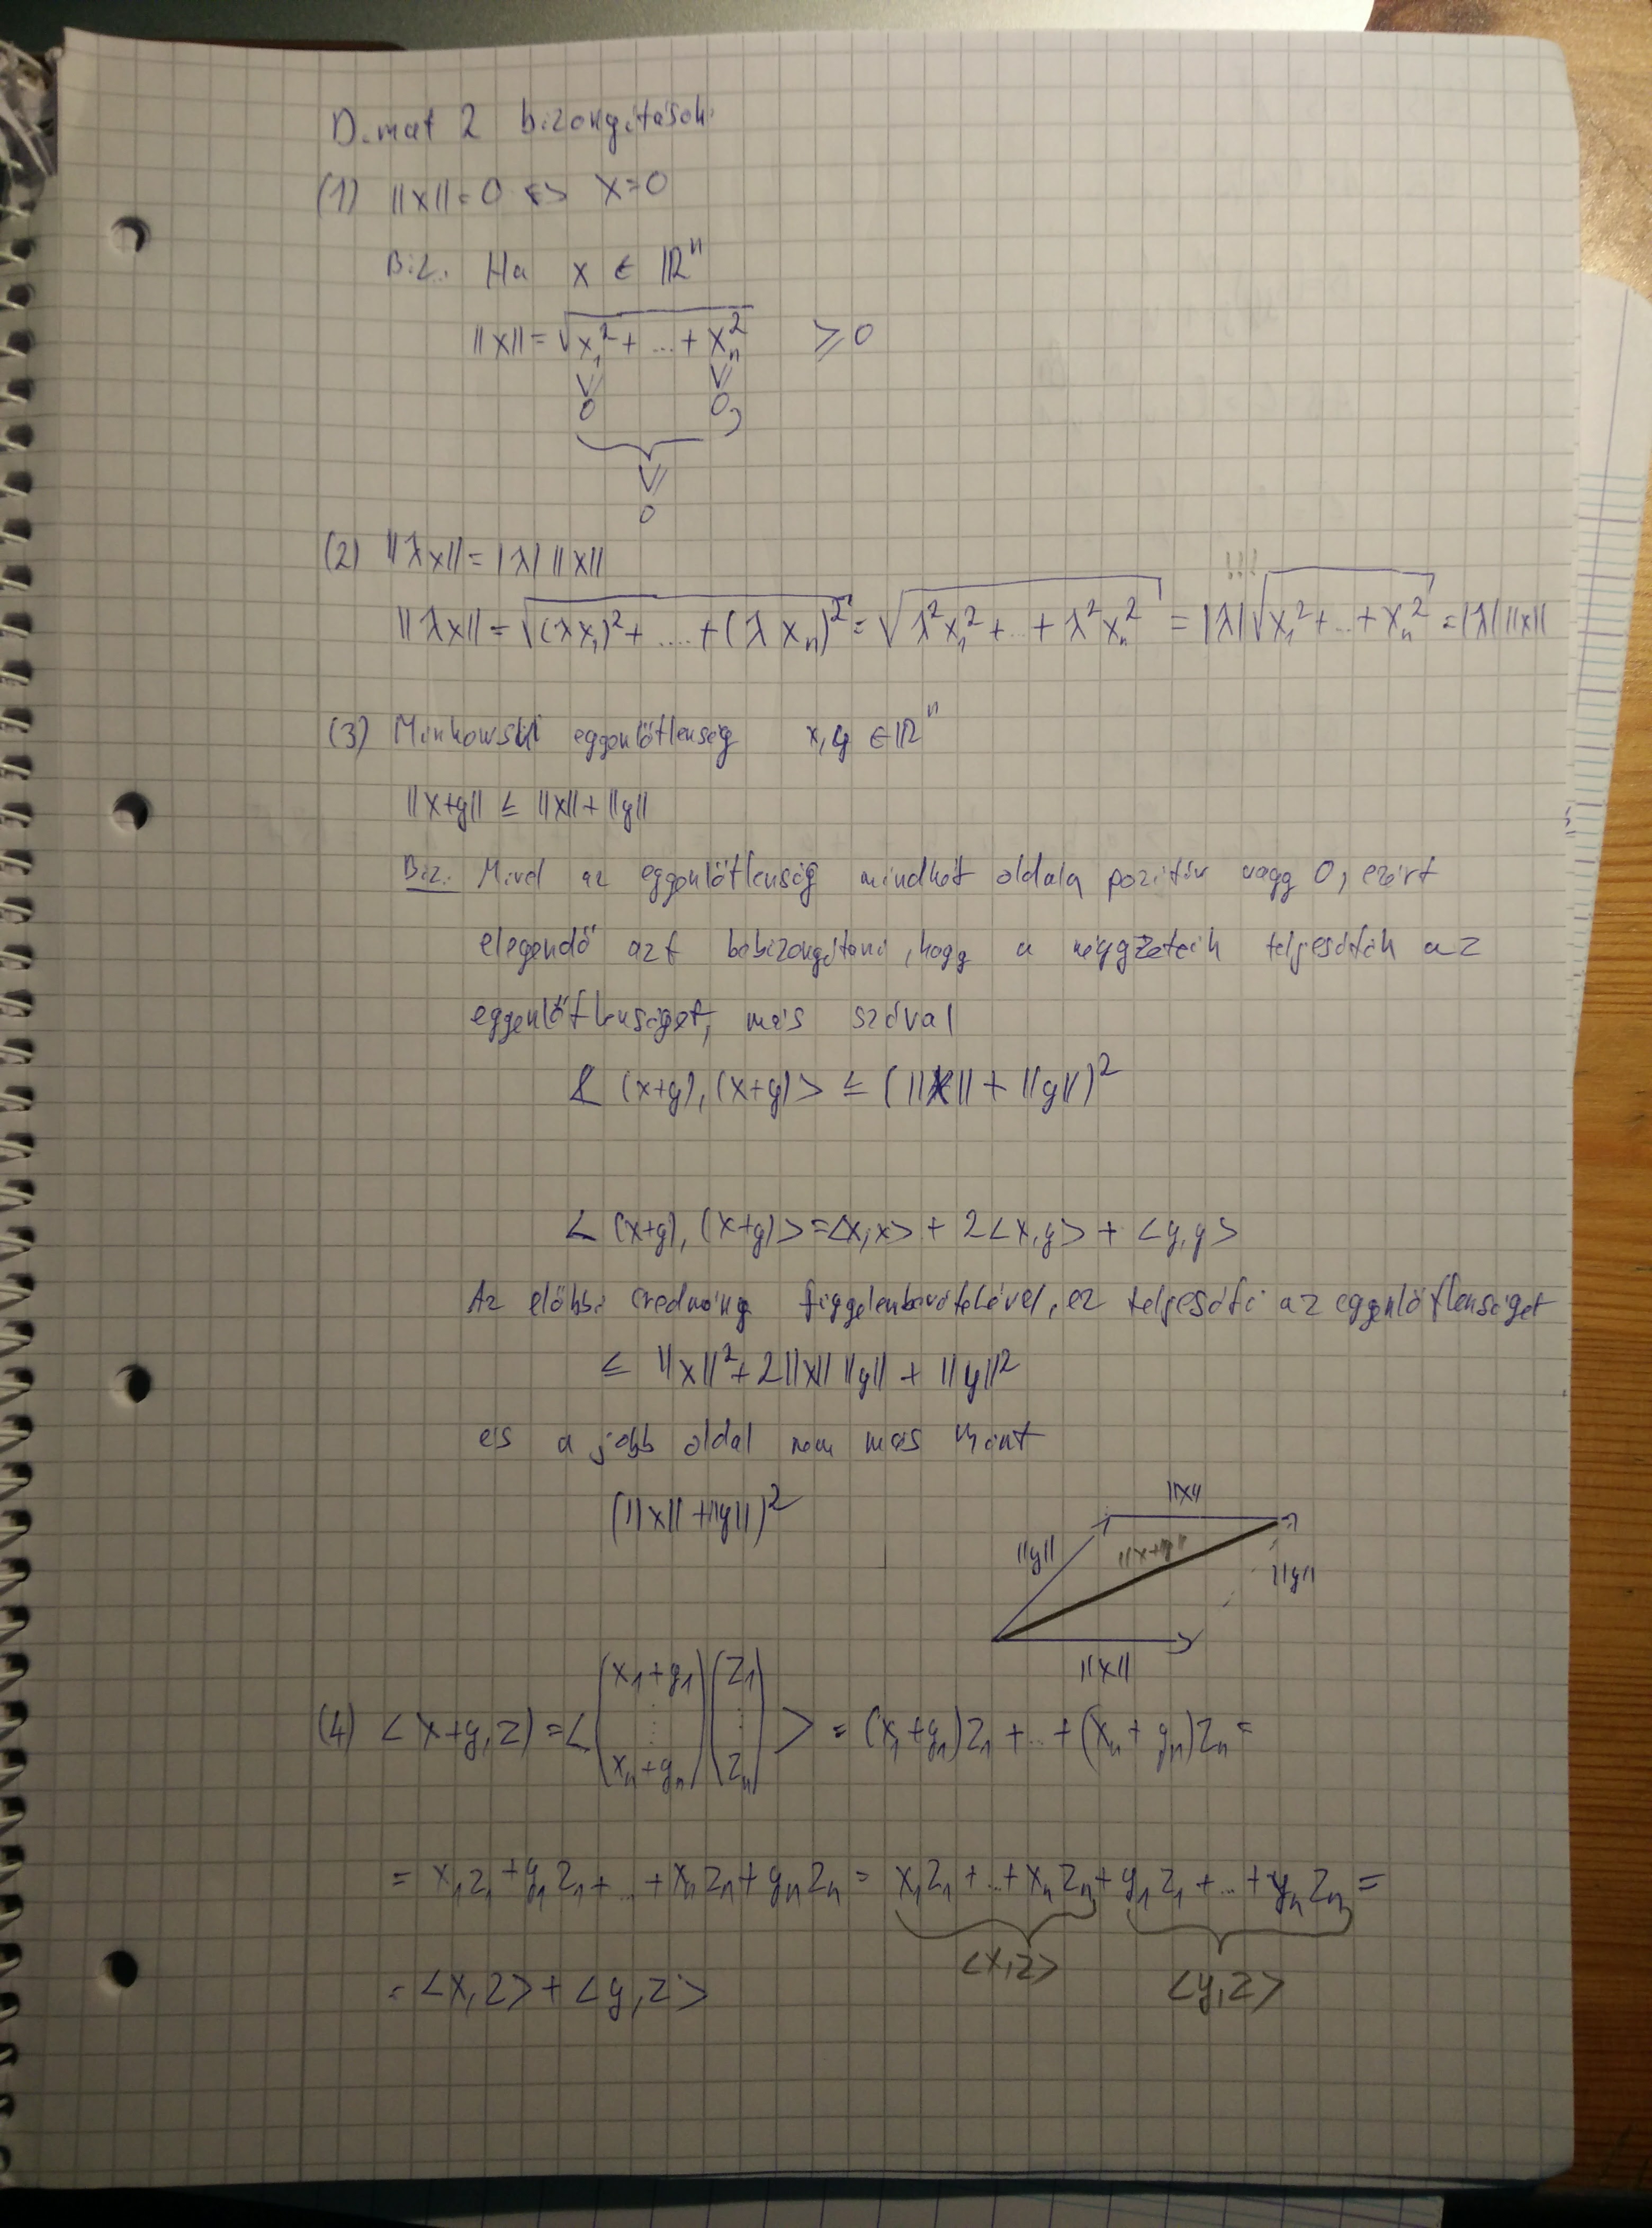 D.mat 2 bizonyítások:
(1) ||x|| = 0 <=> x = 0
Biz.: Ha x ∈ ℝⁿ
||x|| = √(x₁² + ... + xₙ²) ≥ 0
≥ ≥
0 0,
≥
0
(2) ||λx|| = |λ| ||x||
!!!
||λx|| = √((λx₁)² + .... + (λxₙ)²) = √(λ²x₁² + ... + λ²xₙ²) = |λ| √(x₁² + ... + xₙ²) = |λ| ||x||
(3) Minkowski egyenlőtlenség x, y ∈ ℝⁿ
||x+y|| ≤ ||x|| + ||y||
Biz.: Mivel az egyenlőtlenség mindkét oldala pozitív vagy 0, ezért
elegendő azt bebizonyítani, hogy a négyzeteik teljesítik az
egyenlőtlenséget, más szóval
< (x+y), (x+y) > ≤ (||x|| + ||y||)²
< (x+y), (x+y) > = <x, x> + 2<x, y> + <y, y>
Az előbbi eredmény figyelembevételével, ez teljesíti az egyenlőtlenséget
≤ ||x||² + 2||x|| ||y|| + ||y||²
és a jobb oldal nem más mint
(||x|| + ||y||)²
||x||
||y|| ||x+y|| ||y||
||x||
(4) < x+y, z) = < (x₁+y₁ ⋮ xₙ+yₙ) (z₁ ⋮ zₙ) > = (x₁+y₁)z₁ + ... + (xₙ+yₙ)zₙ =
= x₁z₁ + y₁z₁ + ... + xₙzₙ + yₙzₙ = x₁z₁ + ... + xₙzₙ + y₁z₁ + ... + yₙzₙ =
<x, z> <y, z>
= <x, z> + <y, z>